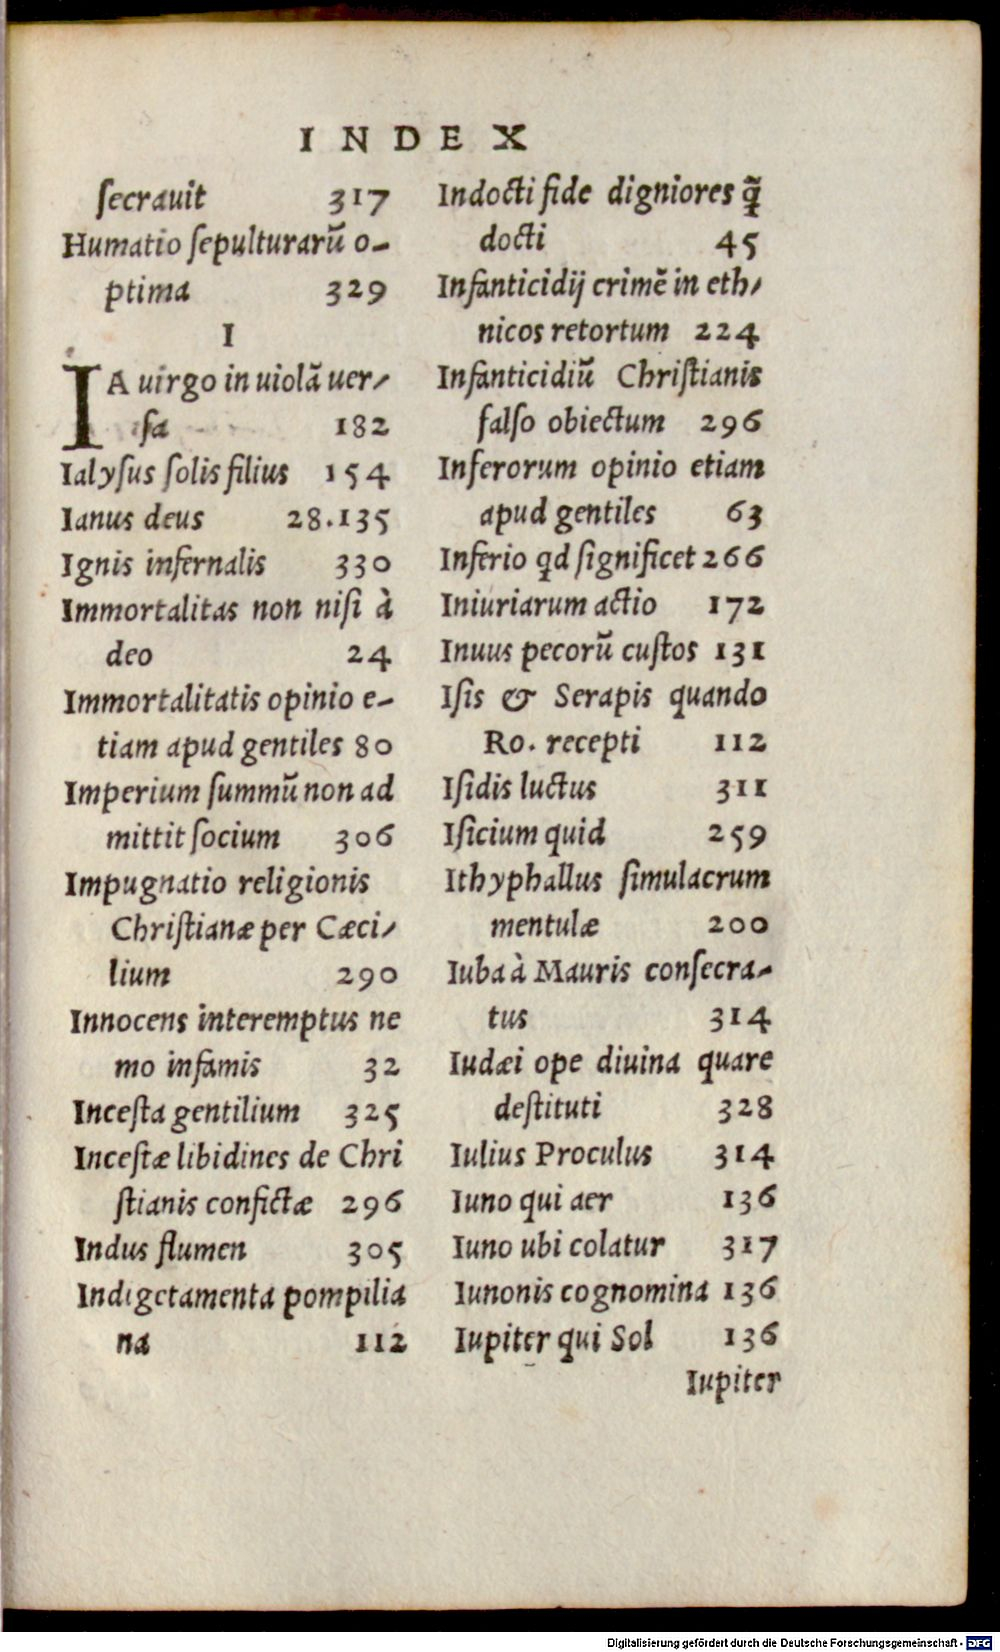 INDEX
ſecrauit 317
Humatio ſepulturarũ o-
ptima 329
I
IA uirgo in uiolã uer-
ſa 182
Ialyſus ſolis filius 154
Ianus deus 28.135
Ignis infernalis 330
Immortalitas non niſi à
deo 24
Immortalitatis opinio e-
tiam apud gentiles 80
Imperium ſummũ non ad
mittit ſocium 306
Impugnatio religionis
Chriſtianæ per Cæci-
lium 290
Innocens interemptus ne
mo infamis 32
Inceſta gentilium 325
Inceſtæ libidines de Chri
ſtianis confictæ 296
Indus flumen 305
Indigetamenta pompilia
na 112
Indocti fide digniores q̃
docti 45
Infanticidij crimẽ in eth-
nicos retortum 224
Infanticidiũ Chriſtianis
falſo obiectum 296
Inferorum opinio etiam
apud gentiles 63
Inferio qd ſignificet 266
Iniuriarum actio 172
Inuus pecorũ cuſtos 131
Iſis & Serapis quando
Ro. recepti 112
Iſidis luctus 311
Iſicium quid 259
Ithyphallus ſimulacrum
mentulæ 200
Iuba à Mauris conſecra-
tus 314
Iudæi ope diuina quare
deſtituti 328
Iulius Proculus 314
Iuno qui aer 136
Iuno ubi colatur 317
Iunonis cognomina 136
Iupiter qui Sol 136
Iupiter
Digitalisierung gefördert durch die Deutsche Forschungsgemeinschaft - DFG